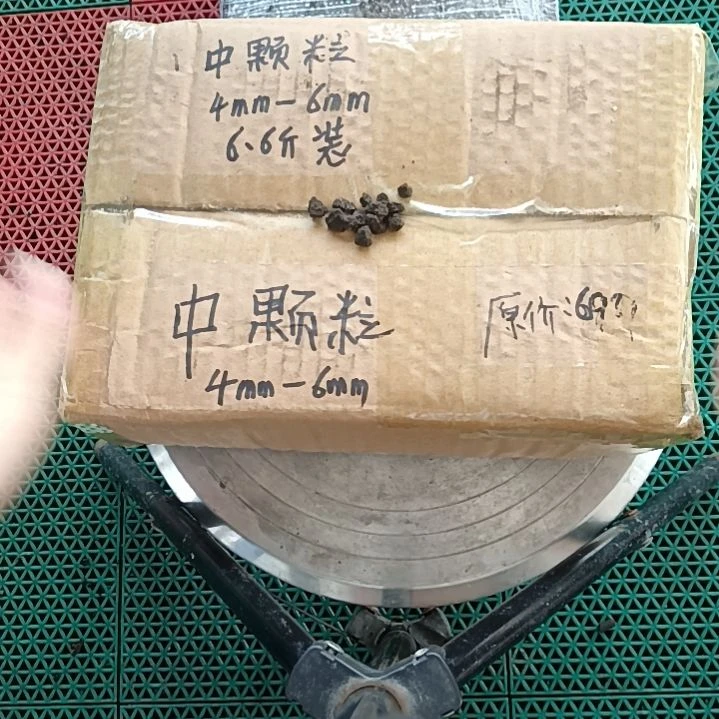 中颗粒
4mm-6mm
6.6斤装
中颗粒
4mm-6mm
原价:69